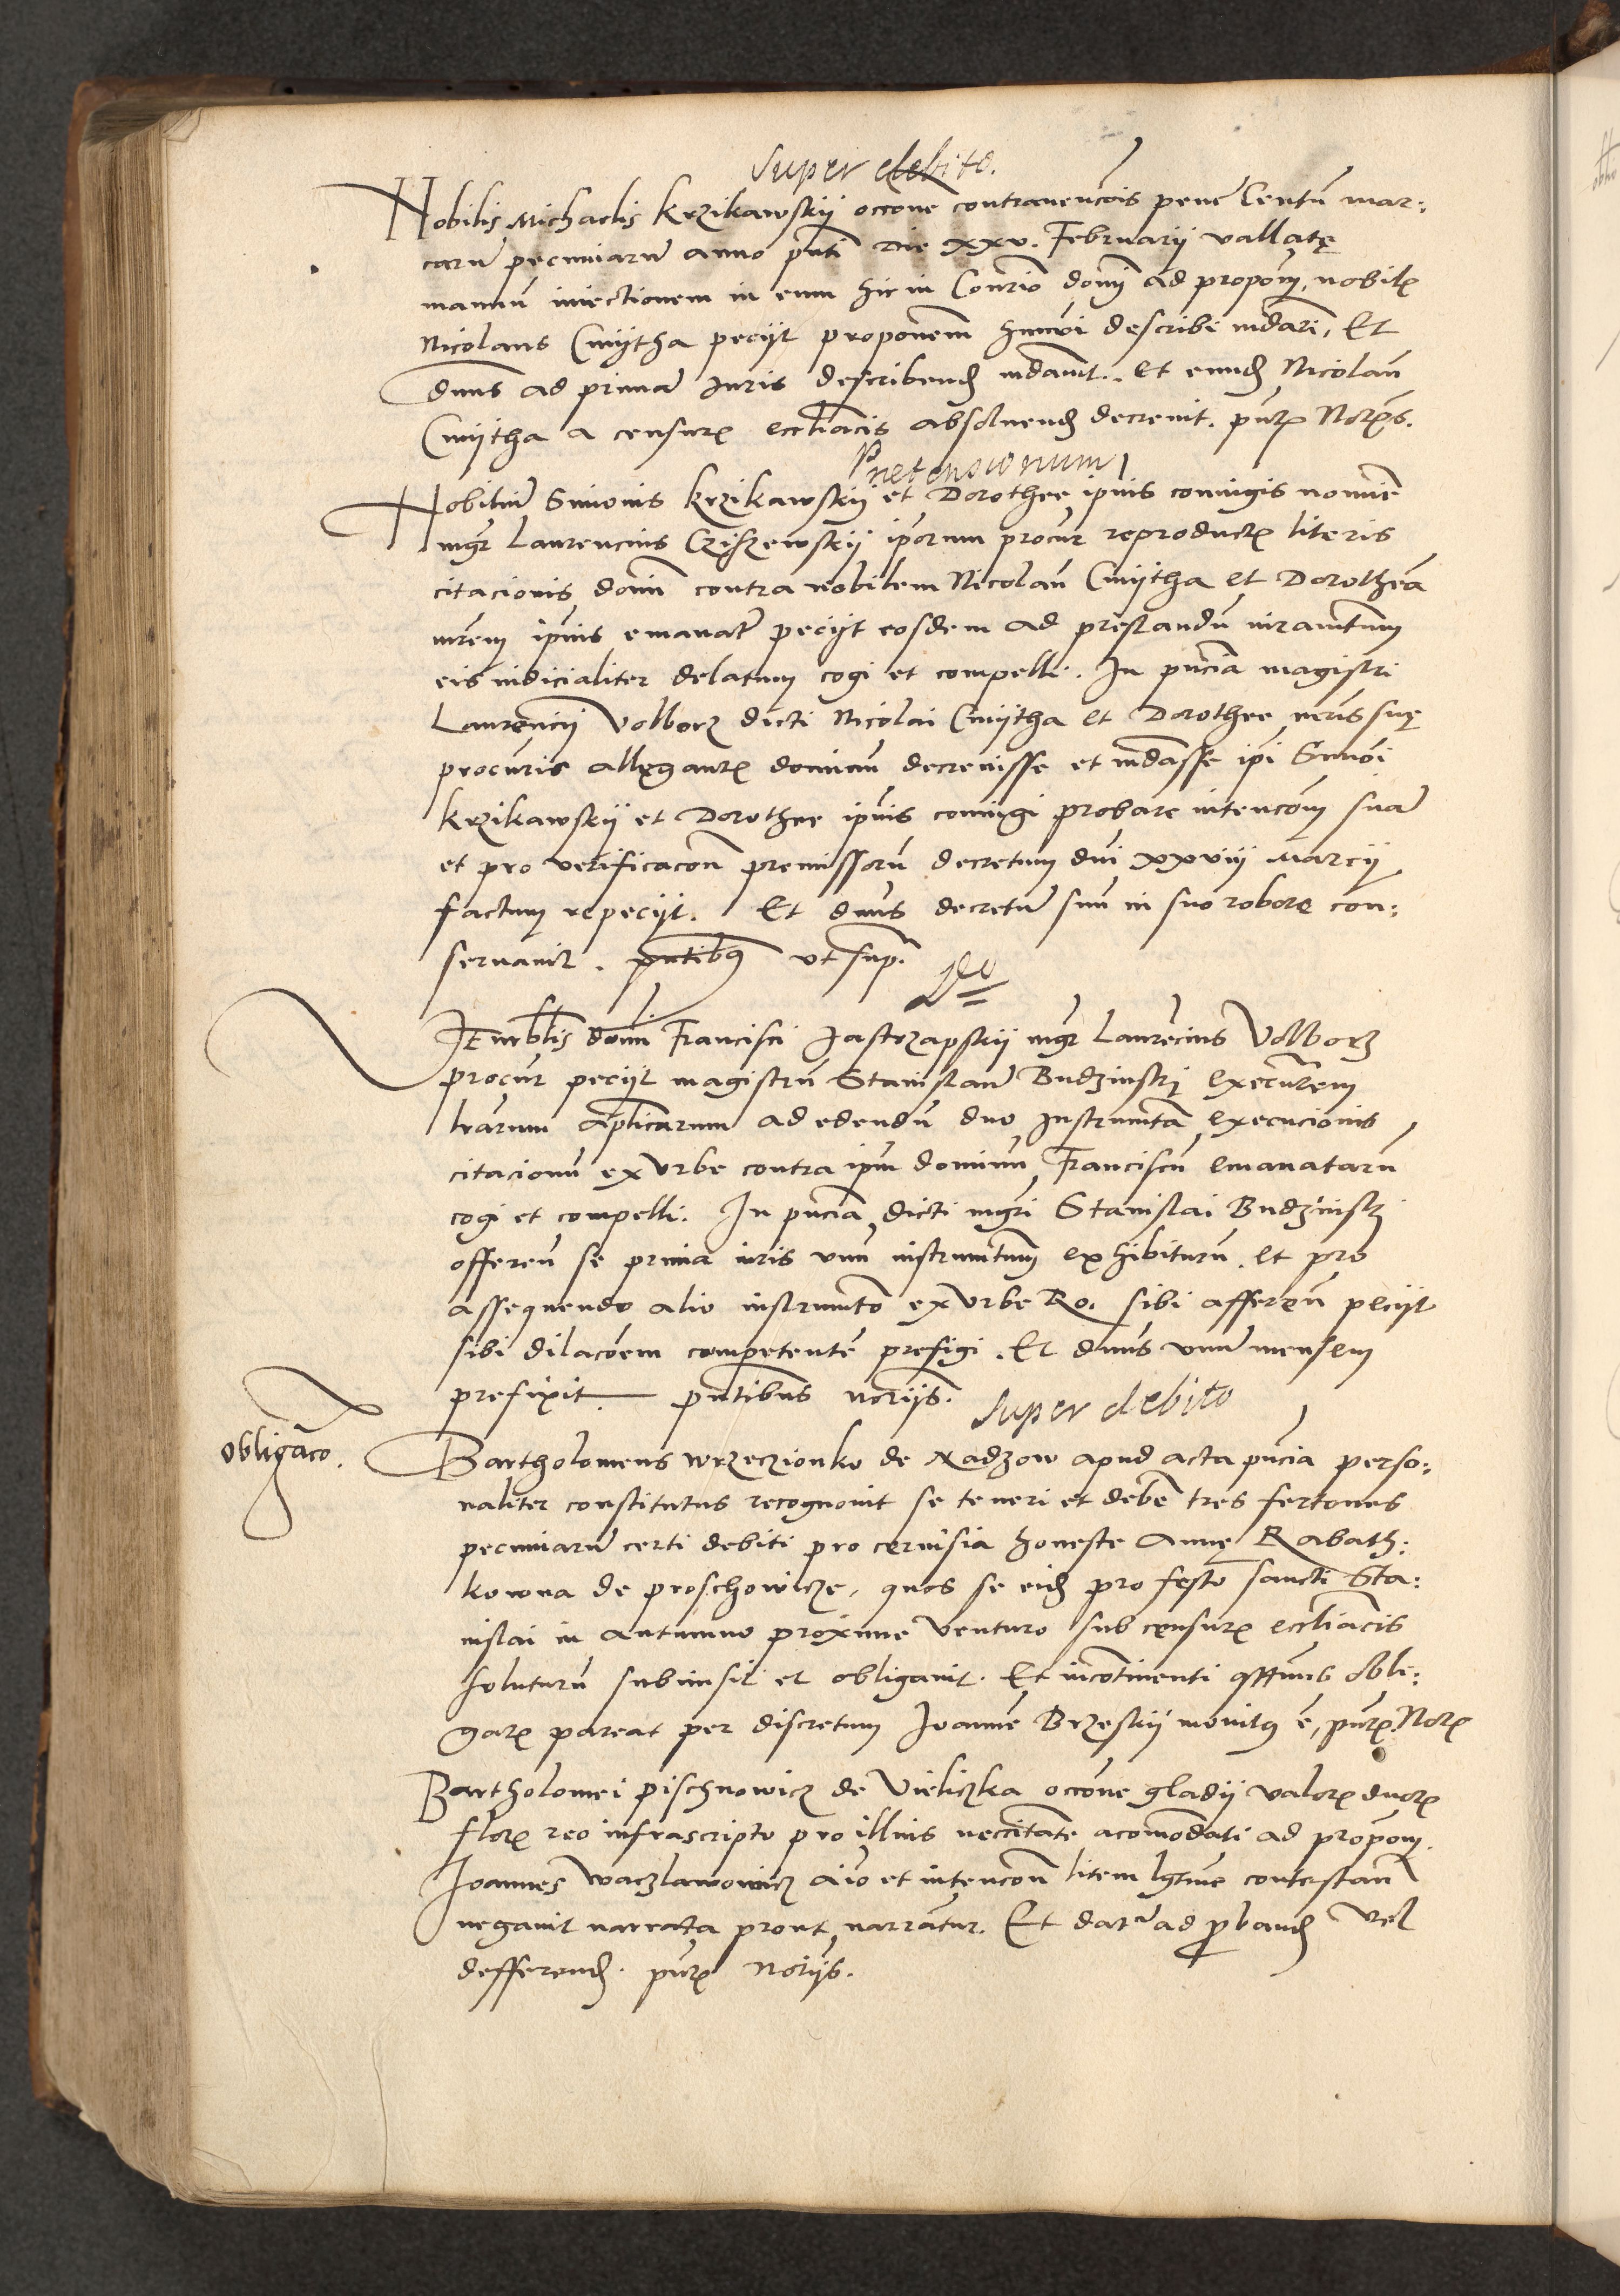 Super debito.
Nobilis Michaelis Krzikawskij occone contravencois pene Centu mar:
caru pecuniaru anno pnti die xxv. Februarij vallatę
manuu iniectionem in eum hic in Consio domi ad propom, nobilis
Nicolaus Cmijtha pecijt proponem describi mdari, Et
dnus ad prima Iuris describend mdavit. Et eund Nicolau
Cmijtha a censuris eccliacis absoluend decrevit. pntr Notrs.
Pretensionum
Nobiliu Simonis Krzikawskij et Dorothee ipius coniugis nomine
mgr Laurencius Cziszewskij iporum procur reproductis literis
citacionis domi contra nobilem Nicolau Cmijtha et Dorothea
mrem ipius emanatis pecijt eosdem ad prestandu iuramtum
eis iudicialiter delatum cogi et compelli. In pncia magistri
Laurencij Volborz dicti Nicolai Cmijtha et Dorothee mris suę
procuris allegantis dominu decrevisse et mdasse ipi Simoi
Krzikawskij et Dorothee ipius coniugi probare intencom sua
et pro verificacon premissoru decretum dni xxviij Marcij
factum repecijt. Et dnus decretu suu in suo robore con:
servavit. pntibus vt sup.
Venerblis domi Francisci Jastrzapskij mgr Laurecius Volborz
procur pecijt magistru Stanislau Budzinskj executorem
lrarum aplicarum ad edendu duo instrumta execucionis
citacionu ex Vrbe contra ipm dominu Franciscu emanataru
cogi et compelli. In pncia dicti mgri Stanislai Budzinskj
offeren se prima iuris vnu instrumtum exhibituru et pro
assequendo alio instrumto ex Vrbe Ro. sibi afferen pecijt
sibi dilacoem competente prefigi. Et dnus vnu mensem
prefixit pntibus notrijs.
Super debito
obligaco.
Bartholomeus Wrzeczionko de Radzow apud acta pncia perso:
naliter constitutus recognovit se teneri et debe tres fertones
pecuniaru certi debiti pro cervisia honeste Anne Rabath:
kowna de proschowicze, quos se eid pro festo sancti Sta:
nislai in autumno proxime venturo sub censuris eccliacis
soluturu submisit et obligavit. Et incontinenti qttinus oble:
garis pareat per discretum Joanne Brzeskij monitus e, pntr Notr
Bartholomei pischnowicz de Vieliczka occone gladij valoris duor
flor reo infrascripto pro illius neccitate acomodati ad propom
Joannes Waczlawowicz aio et intencon litem lgtime contestan
negavit narrata prout narrantur. Et dat ad pband vel
defferend. pntr Notrijs.